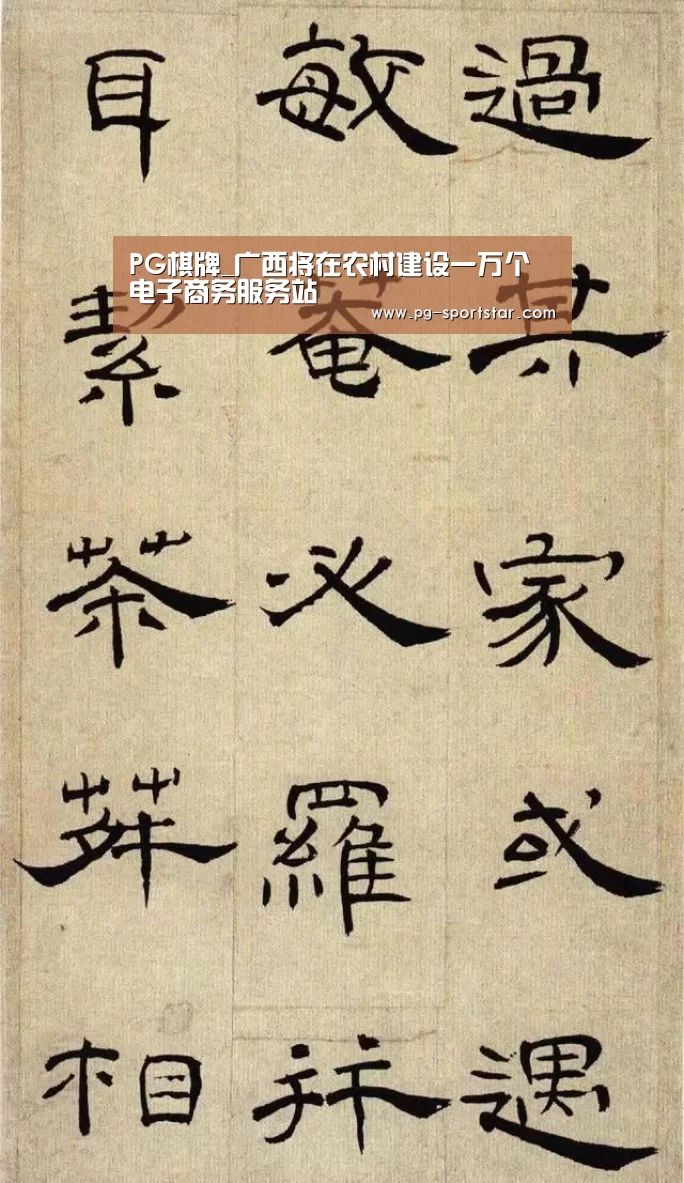 PG棋牌_广西将在农村建设一万个
电子商务服务站
www.pg-sportstar.com
過某家或遇
敏菴必羅
耳絜茶荈相